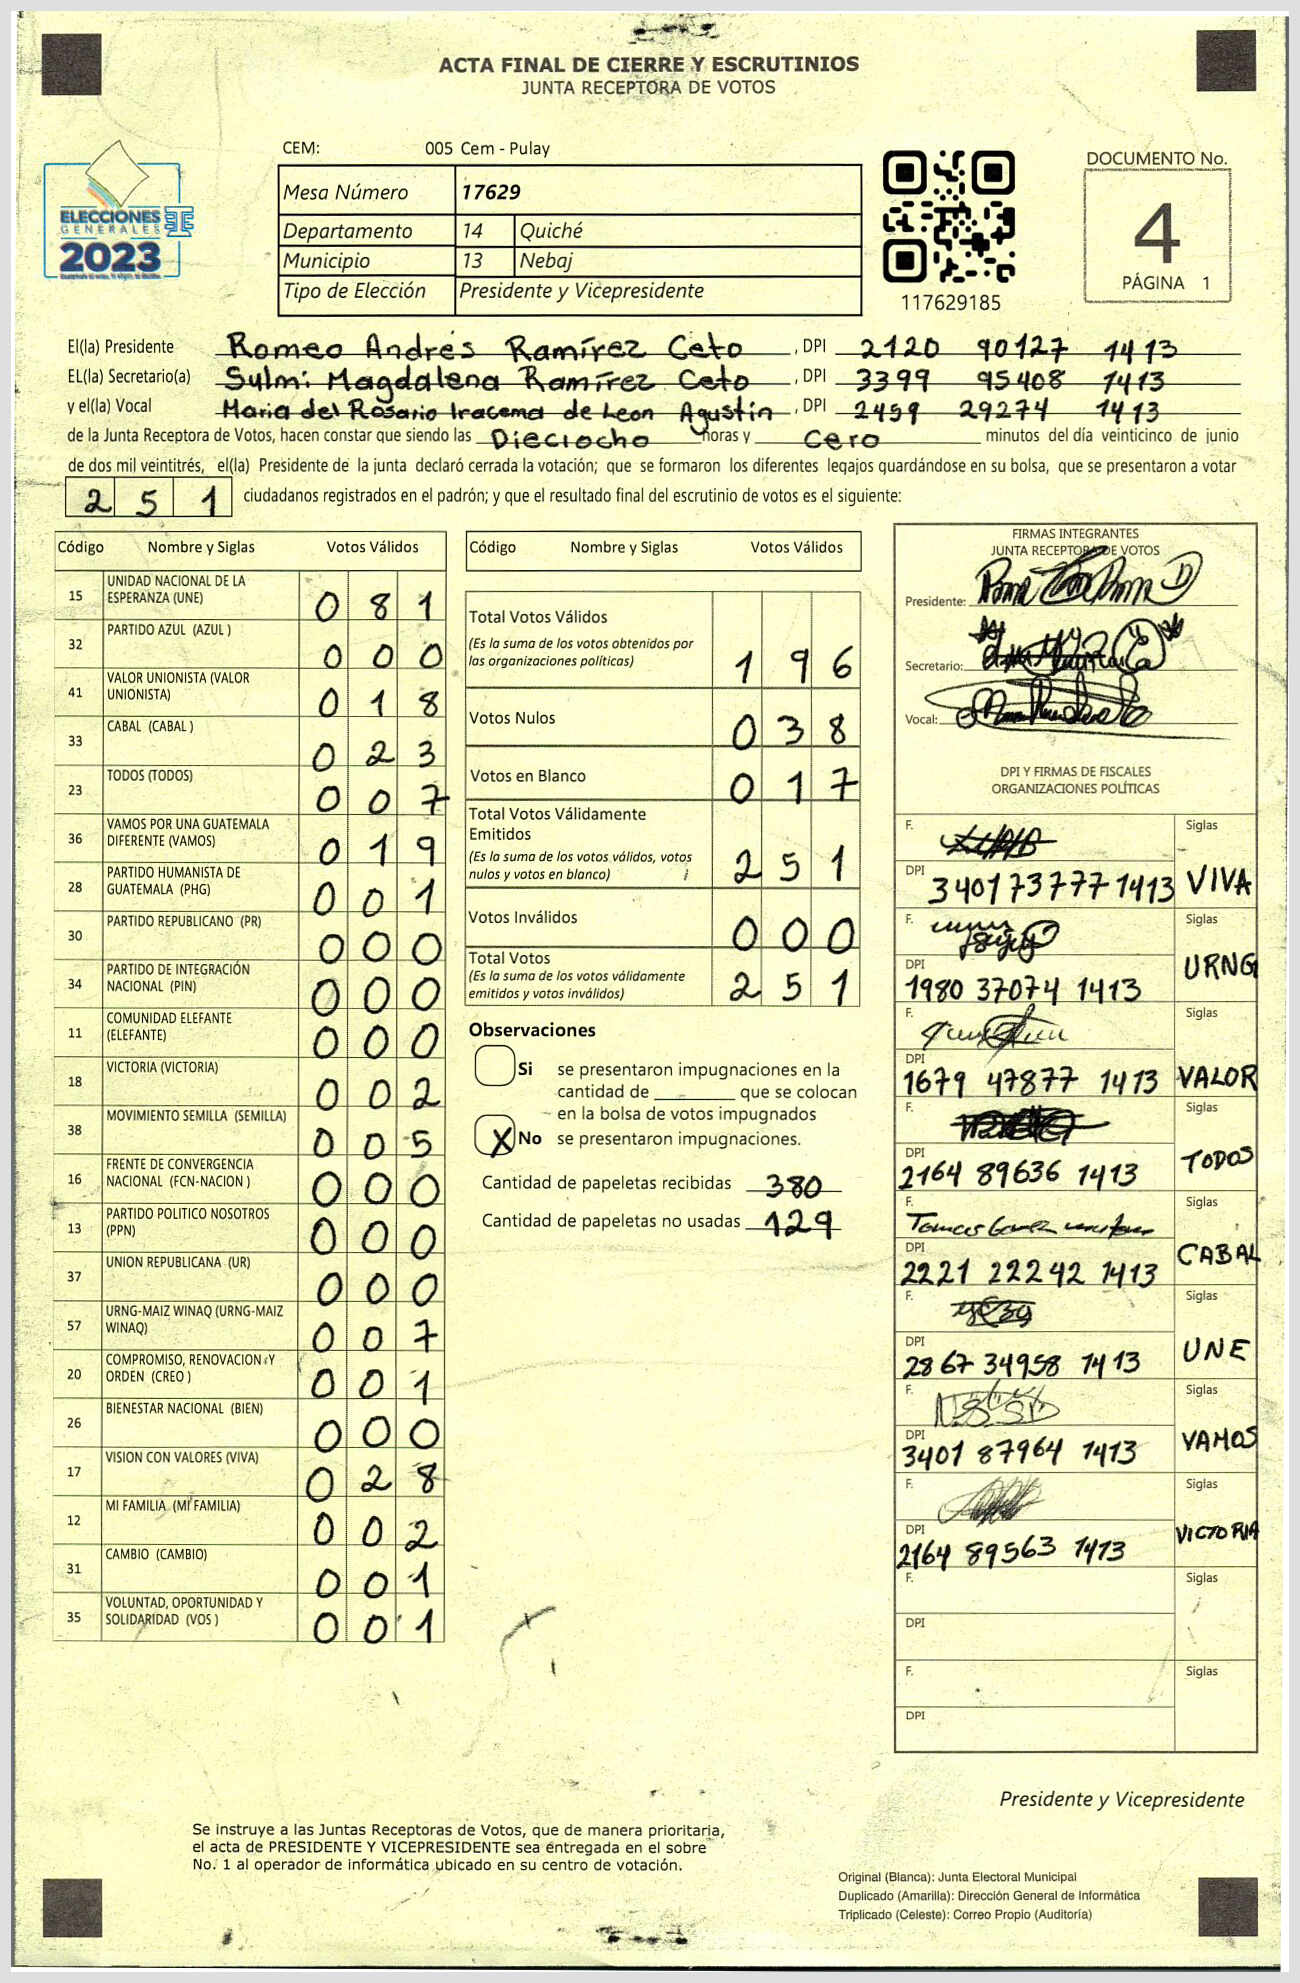 ACTA FINAL DE CIERRE Y ESCRUTINIOS
JUNTA RECEPTORA DE VOTOS
ELECCIONES
GENERALES
2023
CEM: 005 Cem - Pulay
Mesa Número 17629
Departamento 14 Quiché
Municipio 13 Nebaj
Tipo de Elección Presidente y Vicepresidente
117629185
DOCUMENTO No.
4
PÁGINA 1
El(la) Presidente Romeo Andrés Ramírez Ceto , DPI 2120 90127 1413
EL(la) Secretario(a) Sulmi Magdalena Ramírez Ceto , DPI 3399 95408 1413
y el(la) Vocal Maria del Rosario Iracema de Leon Agustin , DPI 2459 29274 1413
de la Junta Receptora de Votos, hacen constar que siendo las Dieciocho horas y Cero minutos del día veinticinco de junio
de dos mil veintitrés, el(la) Presidente de la junta declaró cerrada la votación; que se formaron los diferentes legajos guardándose en su bolsa, que se presentaron a votar
251 ciudadanos registrados en el padrón; y que el resultado final del escrutinio de votos es el siguiente:
Código Nombre y Siglas Votos Válidos
15 UNIDAD NACIONAL DE LA ESPERANZA (UNE) 081
32 PARTIDO AZUL (AZUL ) 000
41 VALOR UNIONISTA (VALOR UNIONISTA) 018
33 CABAL (CABAL ) 023
23 TODOS (TODOS) 007
36 VAMOS POR UNA GUATEMALA DIFERENTE (VAMOS) 019
28 PARTIDO HUMANISTA DE GUATEMALA (PHG) 001
30 PARTIDO REPUBLICANO (PR) 000
34 PARTIDO DE INTEGRACIÓN NACIONAL (PIN) 000
11 COMUNIDAD ELEFANTE (ELEFANTE) 000
18 VICTORIA (VICTORIA) 002
38 MOVIMIENTO SEMILLA (SEMILLA) 005
16 FRENTE DE CONVERGENCIA NACIONAL (FCN-NACION ) 000
13 PARTIDO POLITICO NOSOTROS (PPN) 000
37 UNION REPUBLICANA (UR) 000
57 URNG-MAIZ WINAQ (URNG-MAIZ WINAQ) 007
20 COMPROMISO, RENOVACION Y ORDEN (CREO ) 001
26 BIENESTAR NACIONAL (BIEN) 000
17 VISION CON VALORES (VIVA) 028
12 MI FAMILIA (MI FAMILIA) 002
31 CAMBIO (CAMBIO) 001
35 VOLUNTAD, OPORTUNIDAD Y SOLIDARIDAD (VOS ) 001
Código Nombre y Siglas Votos Válidos
Total Votos Válidos
(Es la suma de los votos obtenidos por
las organizaciones políticas) 196
Votos Nulos 038
Votos en Blanco 017
Total Votos Válidamente
Emitidos
(Es la suma de los votos válidos, votos
nulos y votos en blanco) 251
Votos Inválidos 000
Total Votos
(Es la suma de los votos válidamente
emitidos y votos inválidos) 251
Observaciones
Si se presentaron impugnaciones en la
cantidad de ________ que se colocan
en la bolsa de votos impugnados
X No se presentaron impugnaciones.
Cantidad de papeletas recibidas 380
Cantidad de papeletas no usadas 129
FIRMAS INTEGRANTES
JUNTA RECEPTORA DE VOTOS
Presidente:
Secretario:
Vocal:
DPI Y FIRMAS DE FISCALES
ORGANIZACIONES POLÍTICAS
F. Siglas
DPI 3401737771413 VIVA
F. Siglas
DPI 1980 37074 1413 URNG
F. Siglas
DPI 1679 47877 1413 VALOR
F. Siglas
DPI 2164 89636 1413 TODOS
F. Siglas
DPI 2221 22242 1413 CABAL
F. Siglas
DPI 2867 34958 1413 UNE
F. Siglas
DPI 3401 87964 1413 VAMOS
F. Siglas
DPI 2164 89563 1413 VICTORIA
F. Siglas
DPI
F. Siglas
DPI
Presidente y Vicepresidente
Se instruye a las Juntas Receptoras de Votos, que de manera prioritaria,
el acta de PRESIDENTE Y VICEPRESIDENTE sea entregada en el sobre
No. 1 al operador de informática ubicado en su centro de votación.
Original (Blanca): Junta Electoral Municipal
Duplicado (Amarilla): Dirección General de Informática
Triplicado (Celeste): Correo Propio (Auditoría)